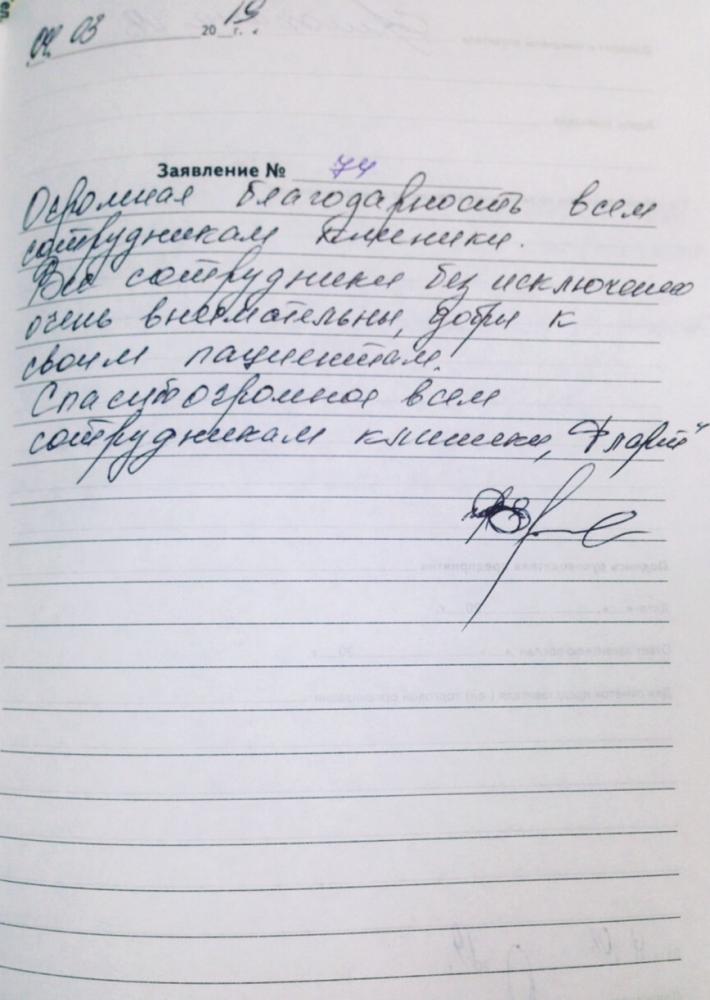 04 03 2019 г.
Заявление № 74
Огромная благодарность всем
сотрудникам клиники.
Все сотрудники без исключения
очень внимательны, добры к
своим пациентам.
Спасибо огромное всем
сотрудникам клиники